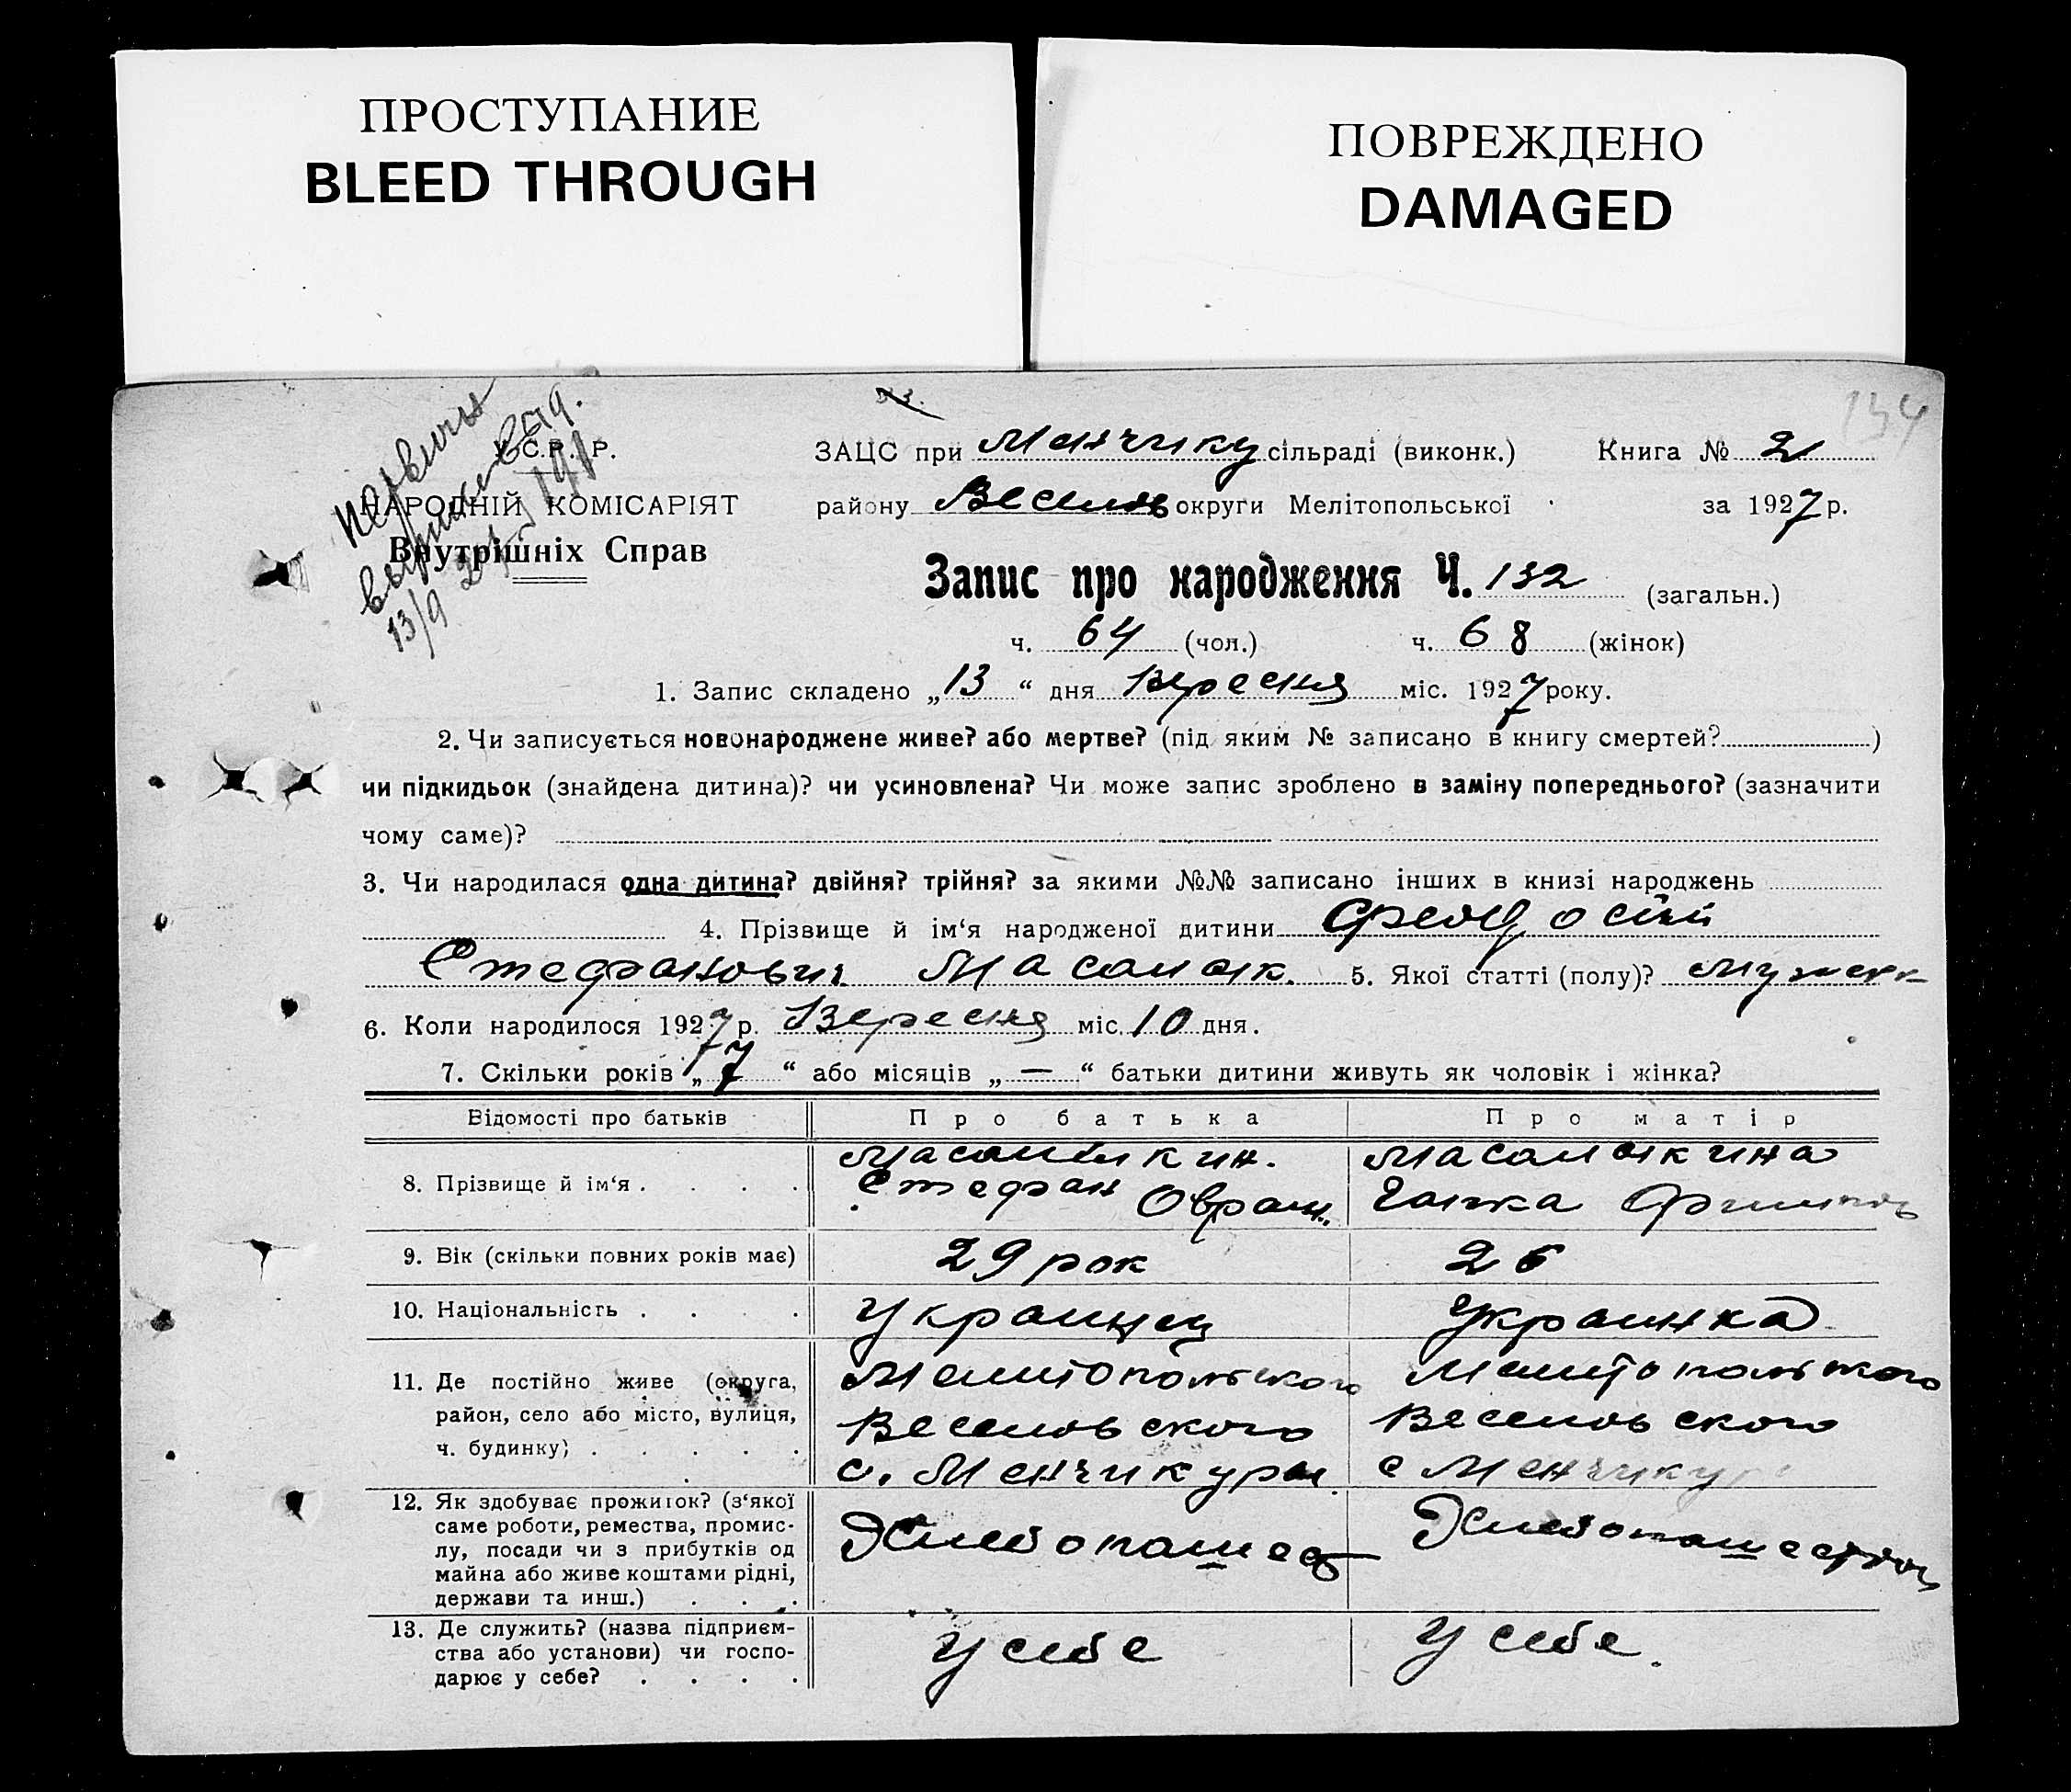 ПРОСТУПАНИЕ
BLEED THROUGH
ПОВРЕЖДЕНО
DAMAGED
134
У.С.Р.Р.
НАРОДНІЙ КОМІСАРІЯТ
Внутрішніх Справ
13/9
ЗАЦС при Менчику сільраді (виконк.) Книга № 21
району Веселов округи Мелітопольської за 1927 р.
Запис про народження Ч. 132 (загальн.)
ч. 64 (чол.) ч. 68 (жінок)
1. Запис складено „13“ дня Вересня міс. 1927 року.
2. Чи записується новонароджене живе? або мертве? (під яким № записано в книгу смертей? )
чи підкидьок (знайдена дитина)? чи усиновлена? Чи може запис зроблено в заміну попереднього? (зазначити
чому саме)?
3. Чи народилася одна дитина? двійня? трійня? за якими №№ записано інших в книзі народжень
4. Прізвище й ім‘я народженої дитини Феодосій
Стефанович 5. Якої статті (полу)? мужск
6. Коли народилося 1927 р. Вересня міс. 10 дня.
7. Скільки років „7“ або місяців „—“ батьки дитини живуть як чоловік і жінка?
Відомості про батьків Про батька Про матір
8. Прізвище й ім‘я . . . .
Стефан
9. Вік (скільки повних років має) 29 рок 26
10. Національність . . . . Украинец Украинка
11. Де постійно живе (округа,
район, село або місто, вулиця,
ч. будинку) . . . . .
Мелитопольского Мелитопольского
Веселовского Веселовского
с. Менчикуры с Менчикур
12. Як здобуває прожиток? (з‘якої
саме роботи, ремества, промис-
лу, посади чи з прибутків од
майна або живе коштами рідні,
держави та инш.) . . .
Хлебопашест Хлебопашеством
13. Де служить? (назва підприєм-
ства або установи) чи госпо-
дарює у себе? . . . .
У себе У себе.